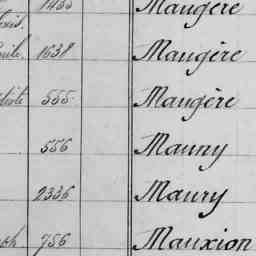 1455 Maugère
1638 Maugère
555 Maugère
556 Mauny
2336 Maury
756 Mauxion